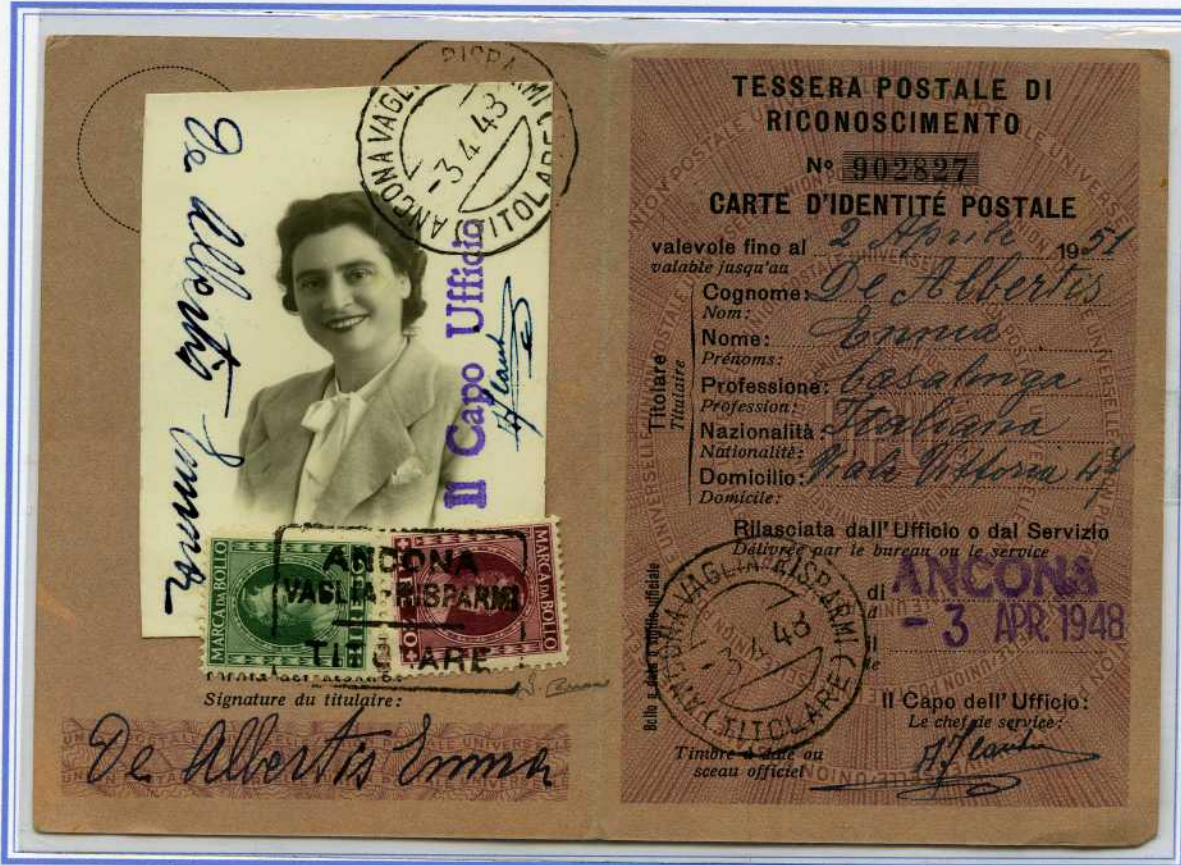 De Albertis Emma
ANCONA VAGLIA RISPARMI (TITOLARE)
-3.4.48
Il Capo Ufficio
MARCA DA BOLLO
LIRE
MARCA DA BOLLO
ANCONA
VAGLIA-RISPARMI
TITOLARE
Signature du titulaire:
De Albertis Emma
TESSERA POSTALE DI
RICONOSCIMENTO
No 902827
CARTE D'IDENTITÉ POSTALE
valevole fino al 2 Aprile 1951
valable jusqu'au
Titolare
Titulaire
Cognome: De Albertis
Nom:
Nome: Emma
Prénoms:
Professione: Casalinga
Profession:
Nazionalità: Italiana
Nationalité:
Domicilio: Viale Vittoria
Domicile:
Rilasciata dall'Ufficio o dal Servizio
Délivrée par le bureau ou le service
di ANCONA
à
il - 3 APR. 1948
le
Bollo a data o bollo ufficiale
ANCONA VAGLIA RISPARMI (TITOLARE)
-3.4.48
Timbre à date ou
sceau officiel
Il Capo dell'Ufficio:
Le chef de service: